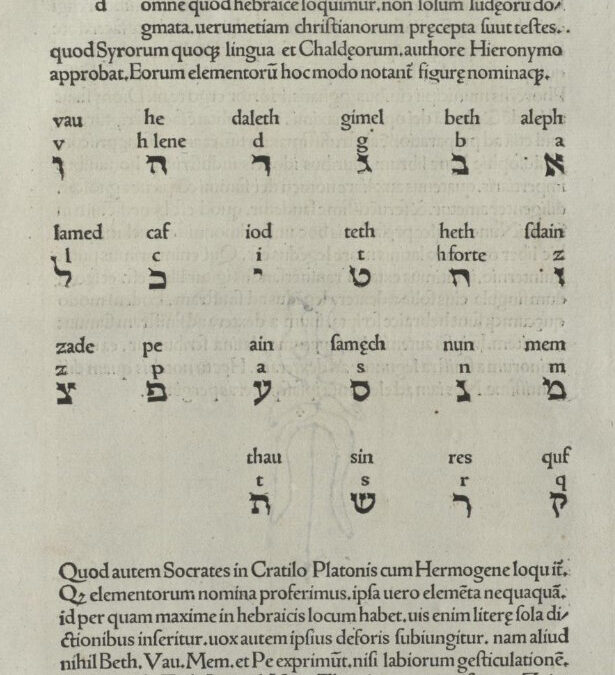 d omne quod hebraice loquimur. non solum iudęoru do⸗
gmata. uerumetiam christianorum pręcepta suut testes.
quod Syrorum quoqꝫ lingua et Chaldęorum. authore Hieronymo
approbat. Eorum elementorū hoc modo notant̃ figurę nominaqꝫ.
vau he daleth gimel beth aleph
v h lene d g b a
ו ה ד ג ב א
lamed caf iod teth heth sdain
l c i t h forte z
ל כ י ט ח ז
zade pe ain samęch nun mem
z p a s n m
צ פ ע ס נ מ
thau sin res quf
t s r q
ת ש ר ק
Quod autem Socrates in Cratilo Platonis cum Hermogene loquit̃.
Qꝫ elementorum nomina proferimus. ipsa uero elemēta nequaquā.
id per quam maxime in hebraicis locum habet. uis enim literę sola di⸗
ctionibus inseritur. uox autem ipsius deforis subiungitur. nam aliud
nihil Beth. Vau. Mem. et Pe exprimūt. nisi labiorum gesticulationē.